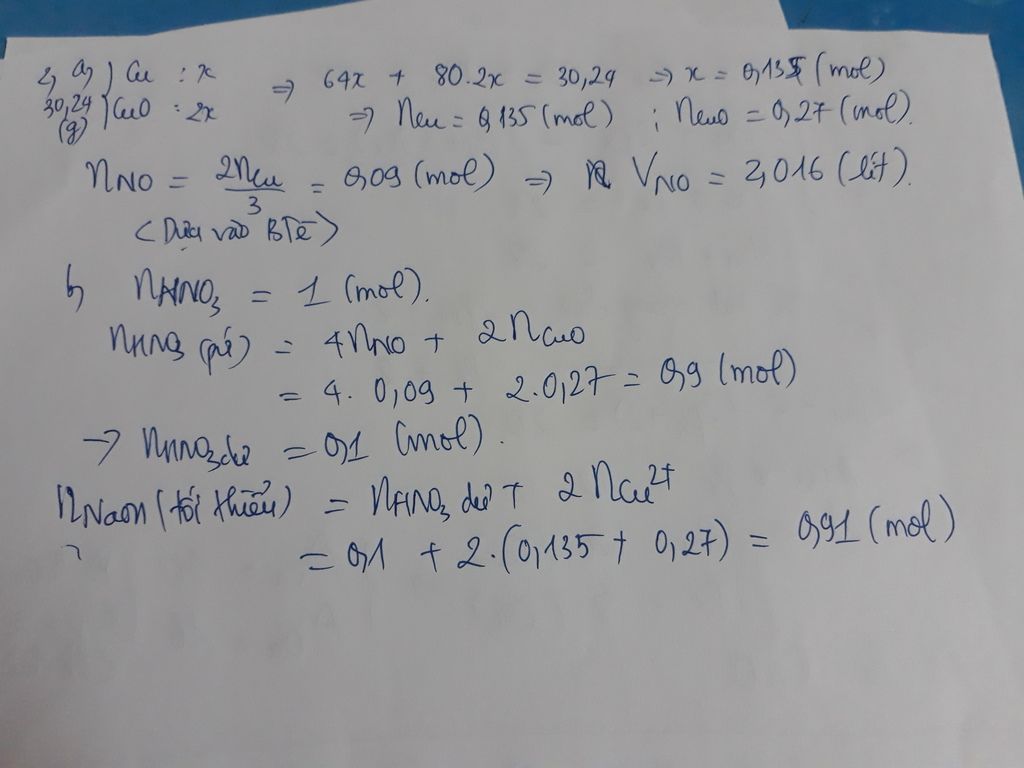 2, a, } Cu : x ⇒ 64x + 80.2x = 30,24 → x = 0,135 (mol)
30,24 (g) } CuO : 2x ⇒ nCu = 0,135 (mol) ; nCuO = 0,27 (mol).
nNO = 2nCu/3 = 0,09 (mol) ⇒ VNO = 2,016 (lít).
<Dựa vào BTe>
b, nHNO3 = 1 (mol).
nHNO3 (pứ) = 4nNO + 2nCuO
= 4. 0,09 + 2.0,27 = 0,9 (mol)
→ nHNO3 dư = 0,1 (mol).
nNaOH (tối thiểu) = nHNO3 dư + 2nCu2+
= 0,1 + 2.(0,135 + 0,27) = 0,91 (mol)